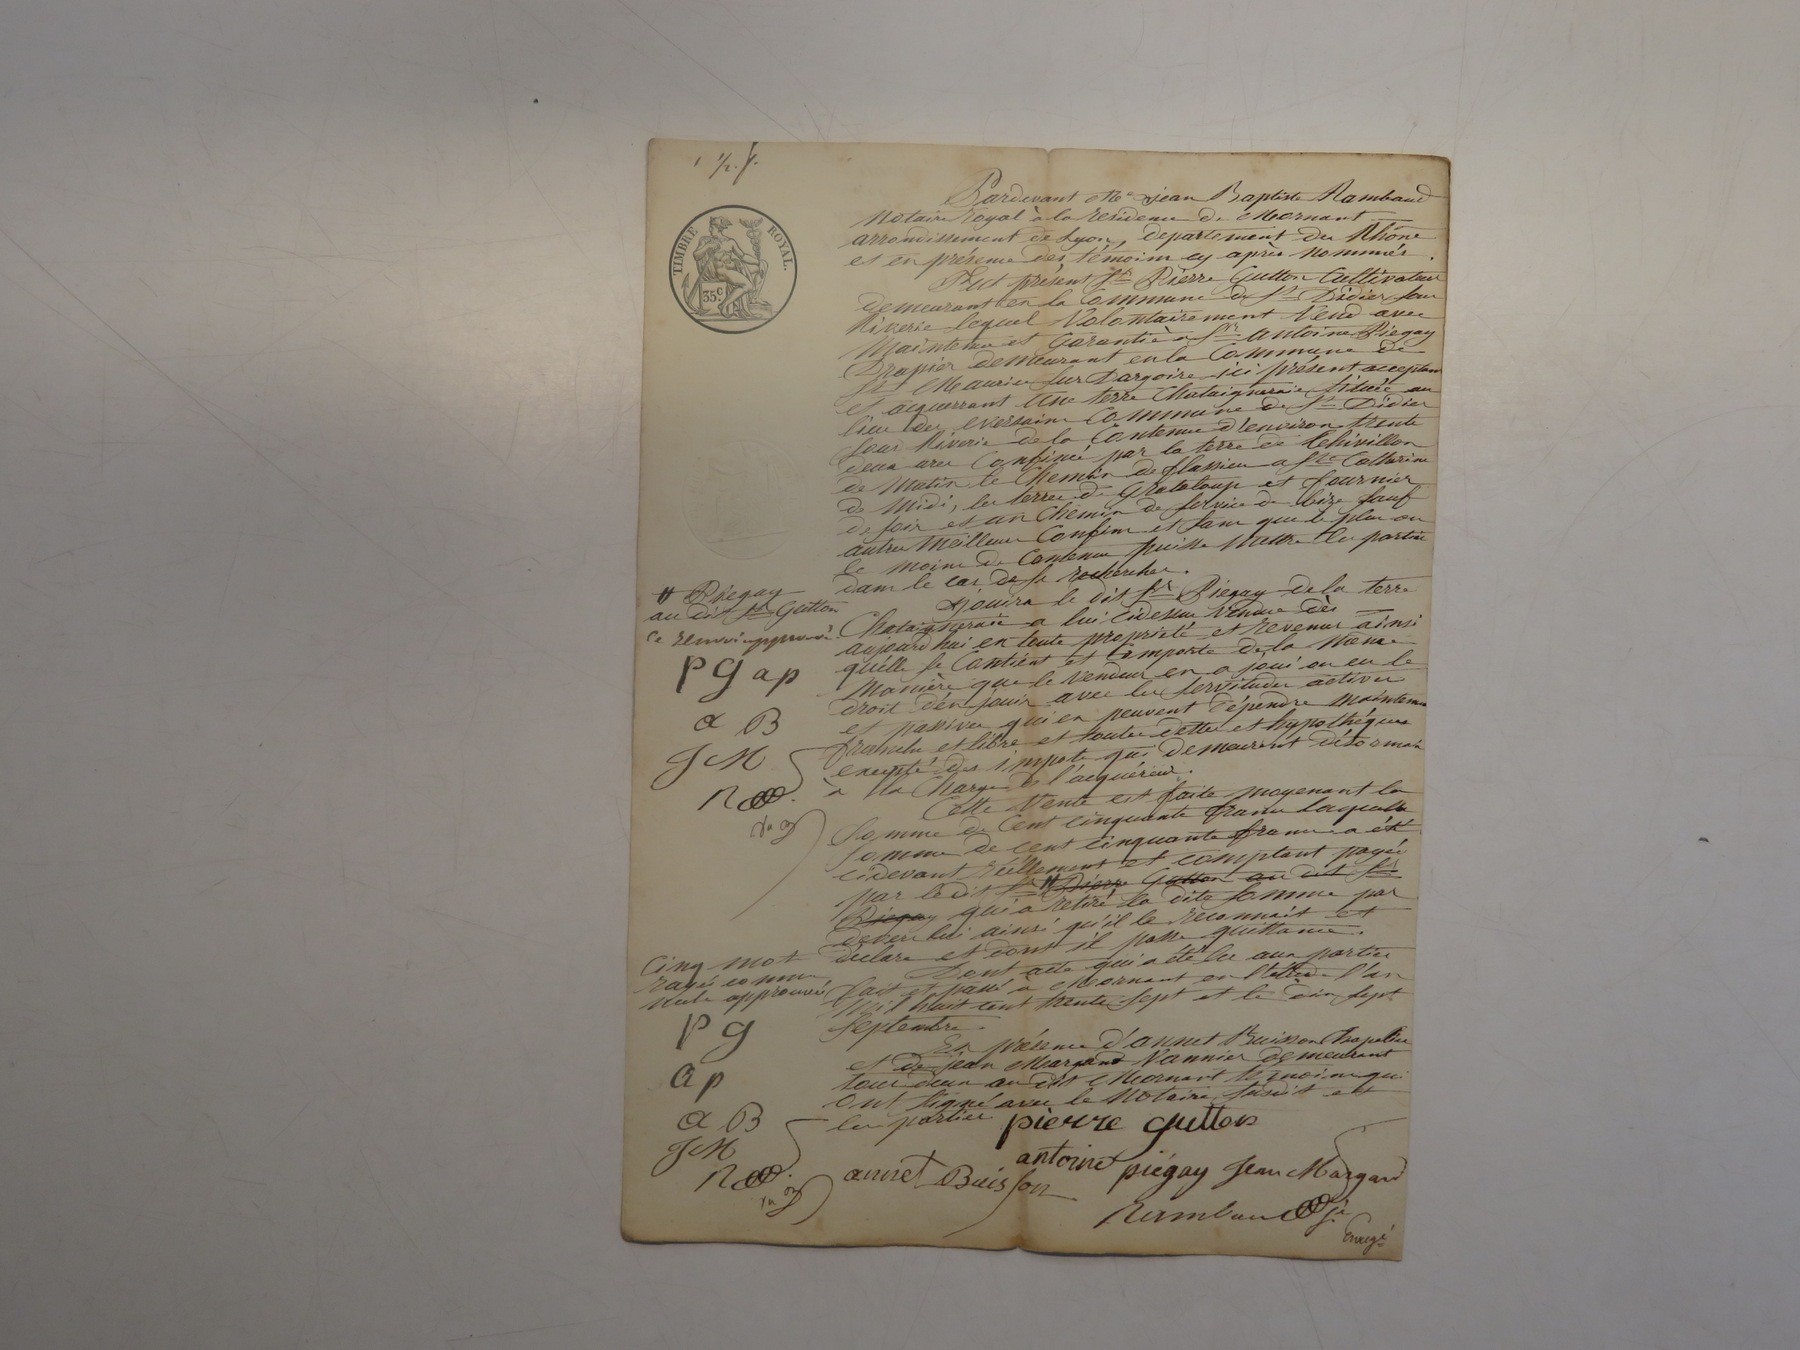 1 1/2. f.
TIMBRE ROYAL.
35 c
Pardevant Me jean Baptiste Rambaud
Notaire royal à la residence de Mornant
arrondissement de Lyon, departement du Rhône
et en présence des témoins cy après nommés.
Est présent Sr Pierre Gutton Cultivateur
demeurant en la Commune de St Didier sous
Riverie lequel Volontairement Vend avec
Maintenue et Garantie à Sr antoine Piegay
Drapier demeurant en la Commune de
St Maurice sur Dargoire ici présent acceptant
et acquerrant Une terre Chataigneraie située au
lieu des Versains Commune de St Didier
sous Riverie de la Contenue d'environ trente
deux ares Confinée par la terre de Chivillon
de Matin le Chemin de flassieu a Ste Catherine
de Midi, les terres de Grataloup et fournier
de soir et un Chemin de service de bize sauf
autres Meilleurs Confins et sans que le plus ou
le moins de Contenue puisse Mettre les parties
dans le cas de se rechercher.
# Piegay
au dit Sr Gutton
ce renvoi approuvé
P g a p
a B
J M
R
Jouira le dit Sr Piegay de la terre
Chataigneraie a lui cidessus Vendue dès
aujourd'hui en toute propriété et revenus ainsi
qu'elle se Contient et Comporte de la Meme
Manière que le Vendeur en a joui ou eu le
droit d'en jouir avec les servitudes actives
et passives qui en peuvent dépendre Maintenu
franche et libre et toutes dettes et hypothéques
excepté des impots qui demeurent désormais
à la Charge de l'acquéreur.
Cette Vente est faite moyenant la
somme de Cent cinquante francs laquelle
somme de cent cinquante francs a été
cidevant réellement et comptant payée
par le dit Sr # Pierre Gutton au dit Sr
Piegay qui a retiré la dite somme par
devers lui ainsi qu'il le reconnait et
déclare et dont il passe quittance.
Cinq mot
rayés comme
nuls approuvés
P g
a p
a B
J M
R
Dont acte qui a été lu aux parties
fait et passé à Mornant en l'étude l'an
Mil huit cent trente sept et le dix sept
septembre.
En présence d'annet Buisson Chapelier
et de jean Margand Vannier demeurant
tous deux au dit Mornant temoins qui
Ont signé avec le Notaire susdit et
les parties
pierre gutton
antoine piégay Jean Margand
annet Buisson
Rambaud